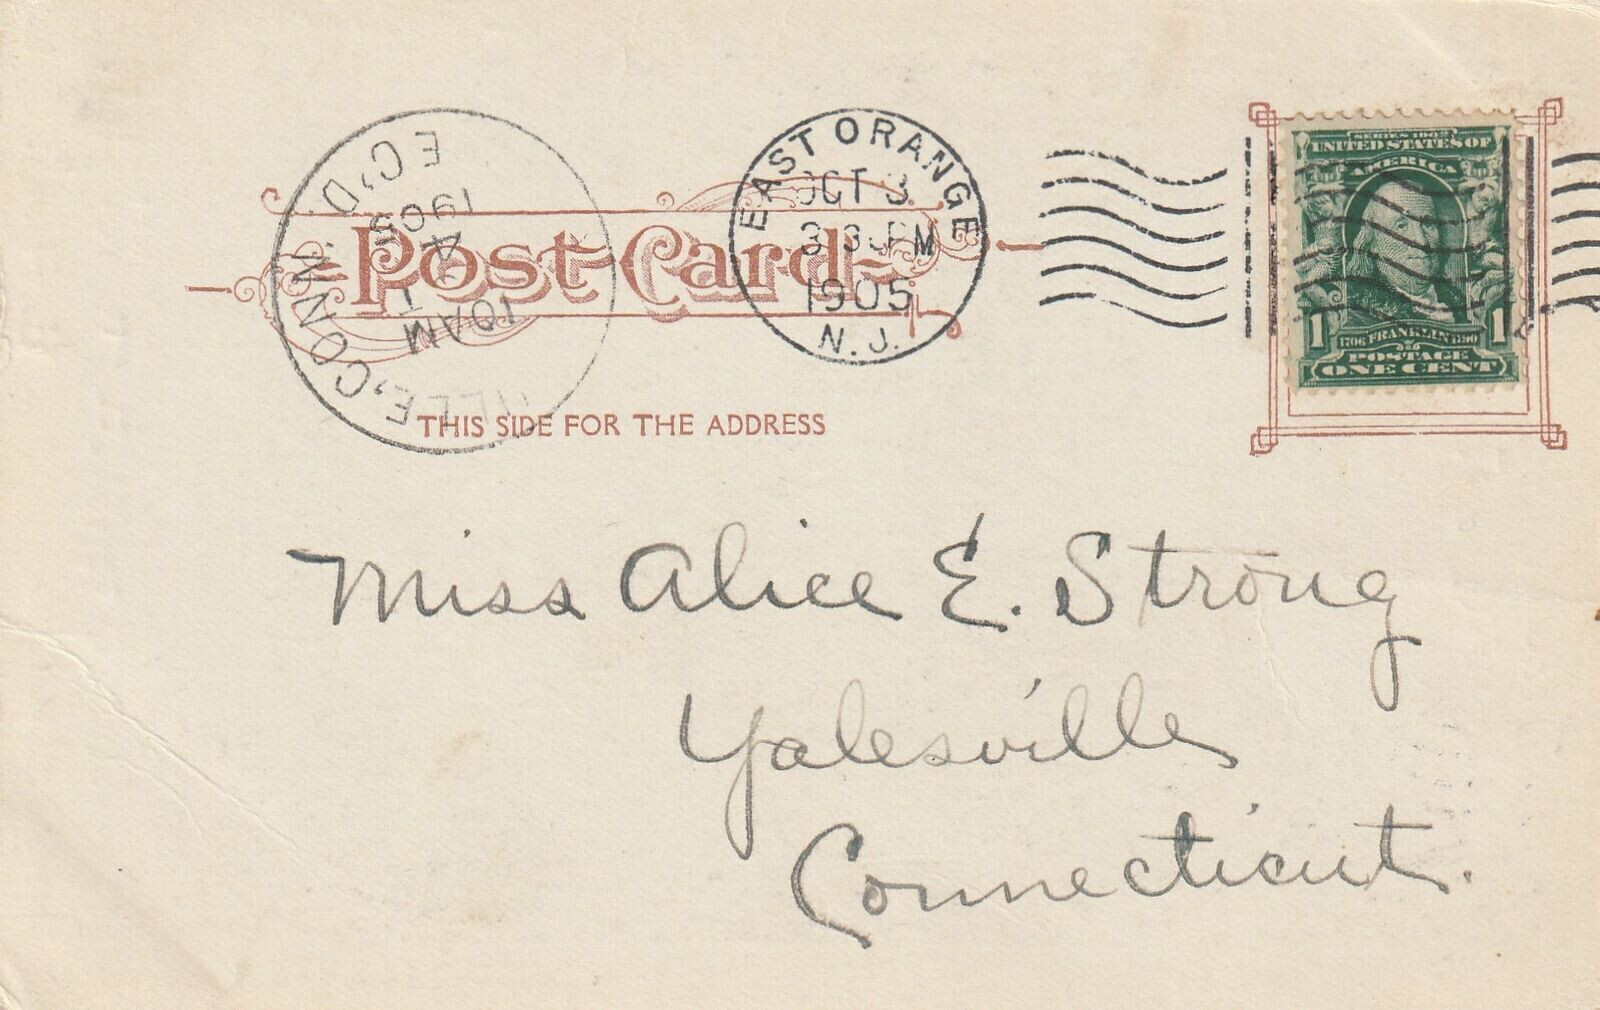 EAST ORANGE
OCT 3
3 30 PM
1905
N.J.
Post Card
THIS SIDE FOR THE ADDRESS
ILLE, CONN. REC'D.
10 AM
4
1905
SERIES 1902
UNITED STATES OF
AMERICA
1706 FRANKLIN 1790
1 1
POSTAGE
ONE CENT
Miss Alice E. Strong
Yalesville
Connecticut.